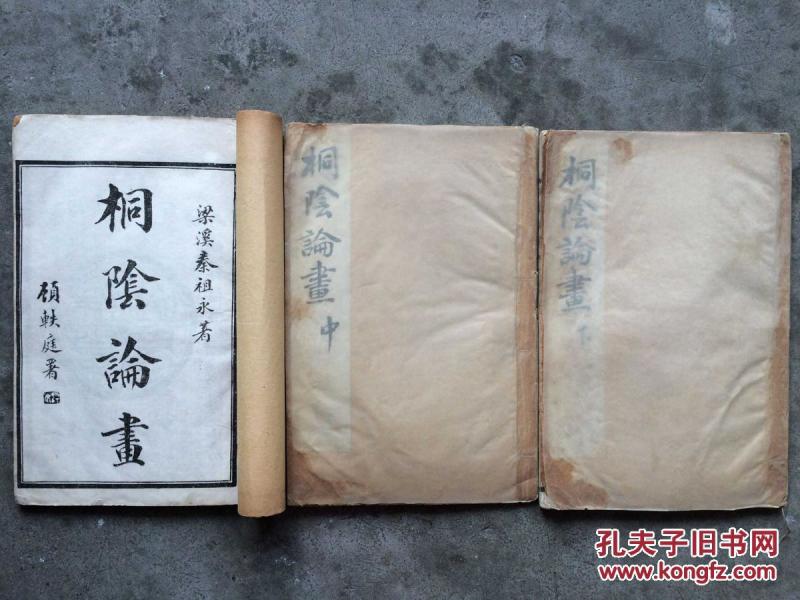 梁溪秦祖永著
桐陰論畫
顧軼庭署
桐陰論畫 中
桐陰論畫 下
孔夫子旧书网
www.kongfz.com